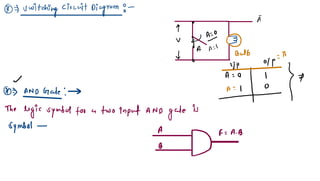 Switching Circuit Diagram :-
Ā
V
A=0
A
A=1
Bulb
i/p
o/p = Ā
A=0 1
A=1 0
AND Gate: →
The logic symbol for a two input AND gate is
symbol —
A
B
F = A.B